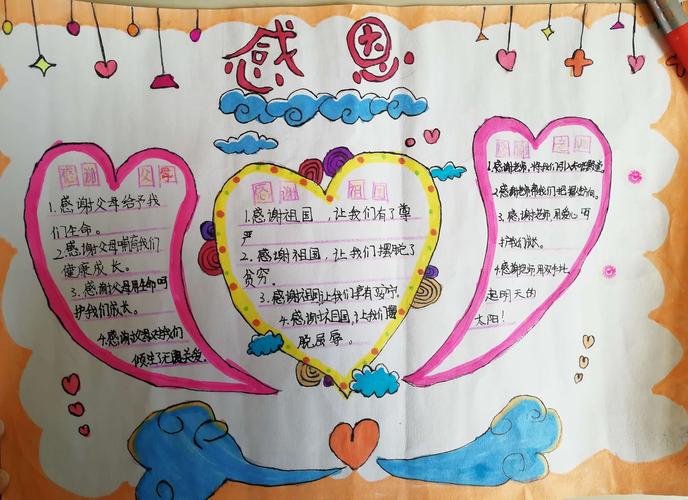 感恩
感谢 父母
1.感谢父母给予我
们生命。
2.感谢父母哺育我们
健康成长。
3.感谢父母用生命呵
护我们成长。
4.感谢父母对我们
倾注了无限关爱。
感谢 祖国
1.感谢祖国,让我们有了尊
严
2.感谢祖国,让我们摆脱了
贫穷。
3.感谢祖国让我们享有安宁
4.感谢祖国,让我们
脱屈辱。
1.感谢老师,将我们引入知识
2.感谢老师帮我们把握
3.感谢老师,用爱心呵
护我们成长。
4.感谢老师用双手托
起明天的
太阳!